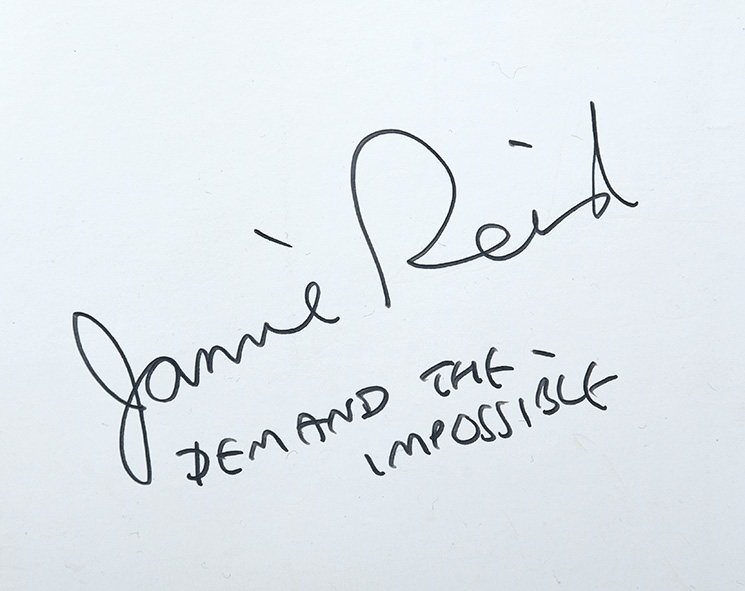 Jamie Reid
DEMAND THE
IMPOSSIBLE